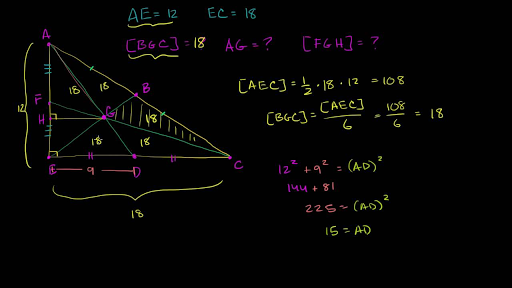 AE = 12 EC = 18
[BGC] = 18 AG = ? [FGH] = ?
A
B
F
G
H
E
D
C
12
18
18
18
18
18
9
18
[AEC] = 1/2 · 18 · 12 = 108
[BGC] = [AEC]/6 = 108/6 = 18
12² + 9² = (AD)²
144 + 81
225 = (AD)²
15 = AD